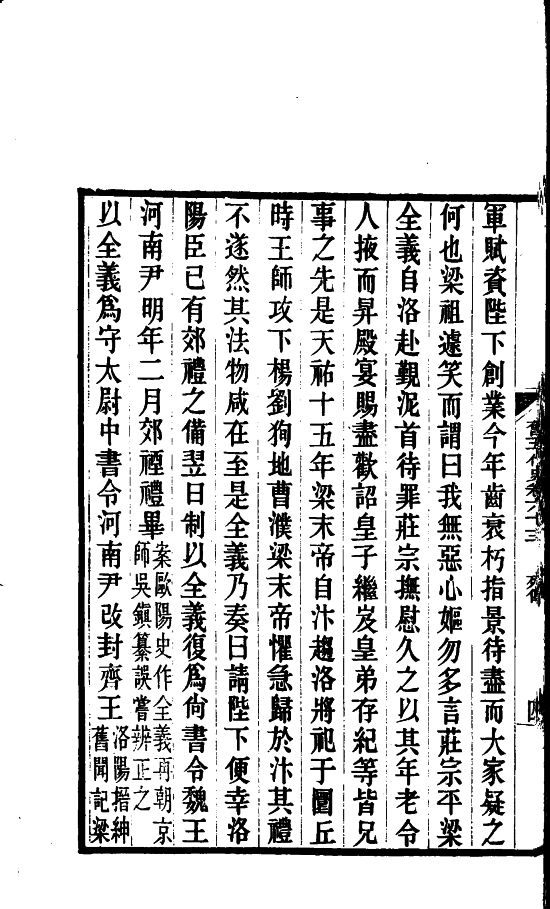 軍賦資陛下創業今年齒衰朽指景待盡而大家疑之
何也梁祖遽笑而謂曰我無惡心嫗勿多言莊宗平梁
全義自洛赴覲泥首待罪莊宗撫慰久之以其年老令
人掖而昇殿宴賜盡歡詔皇子繼岌皇弟存紀等皆兄
事之先是天祐十五年梁末帝自汴趨洛將祀于圜丘
時王師攻下楊劉狥地曹濮梁末帝懼急歸於汴其禮
不遂然其法物咸在至是全義乃奏曰請陛下便幸洛
陽臣已有郊禮之備翌日制以全義復爲尚書令魏王
河南尹明年二月郊禋禮畢案歐陽史作全義再朝京
師吳鎭纂誤嘗辨正之
以全義爲守太尉中書令河南尹改封齊王洛陽搢紳
舊聞記梁
四